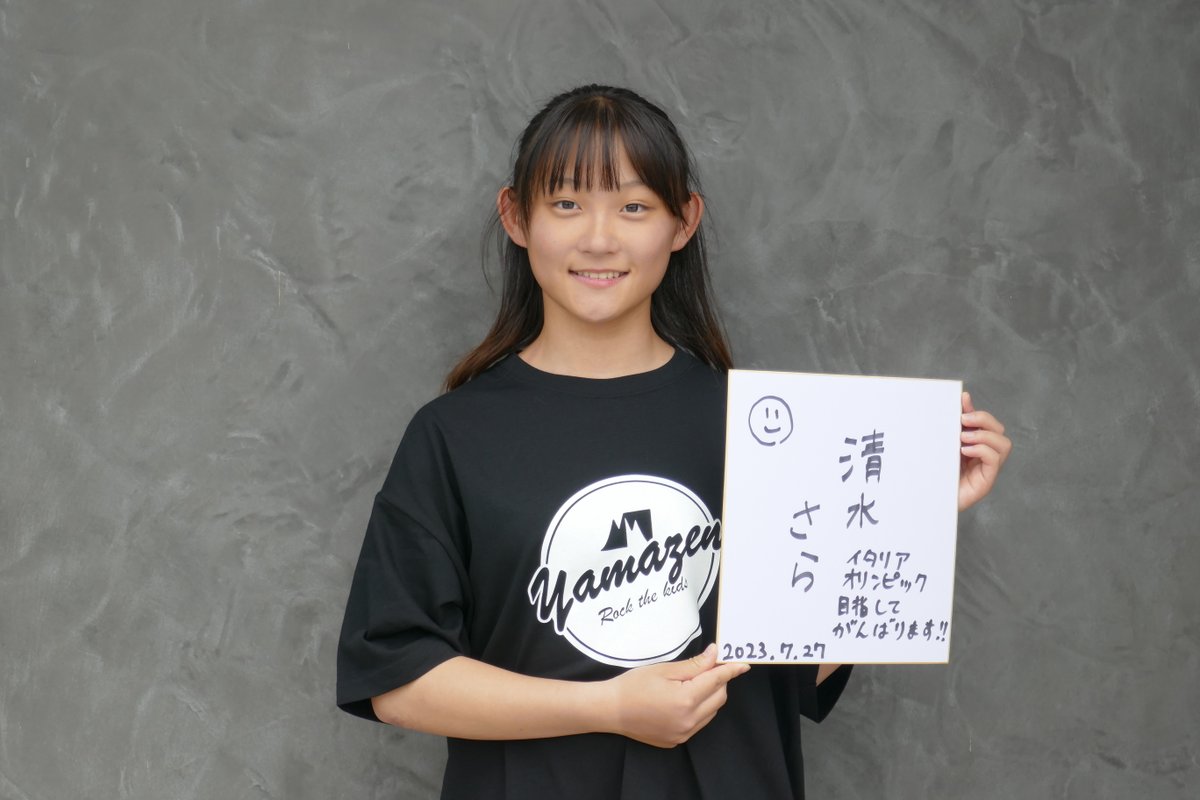 Yamazen
Rock the kids
清水
さら
イタリア
オリンピック
目指して
がんばります!!
2023.7.27